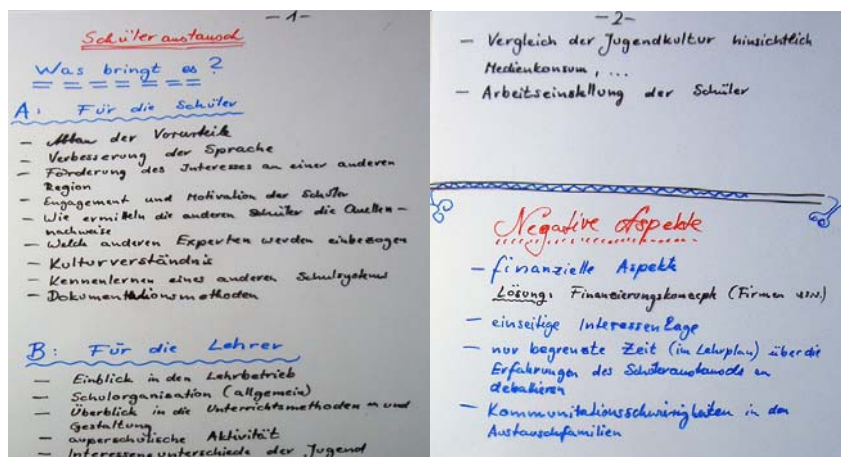 - 1 -
Schüleraustausch
Was bringt es?
A: Für die Schüler
- Abbau der Vorurteile
- Verbesserung der Sprache
- Förderung des Interesses an einer anderen
Region
- Engagement und Motivation der Schüler
- Wie ermitteln die anderen Schüler die Quellen-
nachweise
- Welch anderen Experten werden einbezogen
- Kulturverständnis
- Kennenlernen eines anderen Schulsystems
- Dokumentationsmethoden
B: Für die Lehrer
- Einblick in den Lehrbetrieb
- Schulorganisation (allgemein)
- Überblick in die Unterrichtsmethoden und
Gestaltung
- außerschulische Aktivität
- Interessensunterschiede der Jugend
- 2 -
- Vergleich der Jugendkultur hinsichtlich
Medienkonsum, ...
- Arbeitseinstellung der Schüler
Negative Aspekte
- finanzielle Aspekte
Lösung: Finanzierungskonzept (Firmen usw.)
- einseitige Interessenlage
- nur begrenzte Zeit (im Lehrplan) über die
Erfahrungen des Schüleraustauschs zu
debattieren
- Kommunikationsschwierigkeiten in den
Austauschfamilien